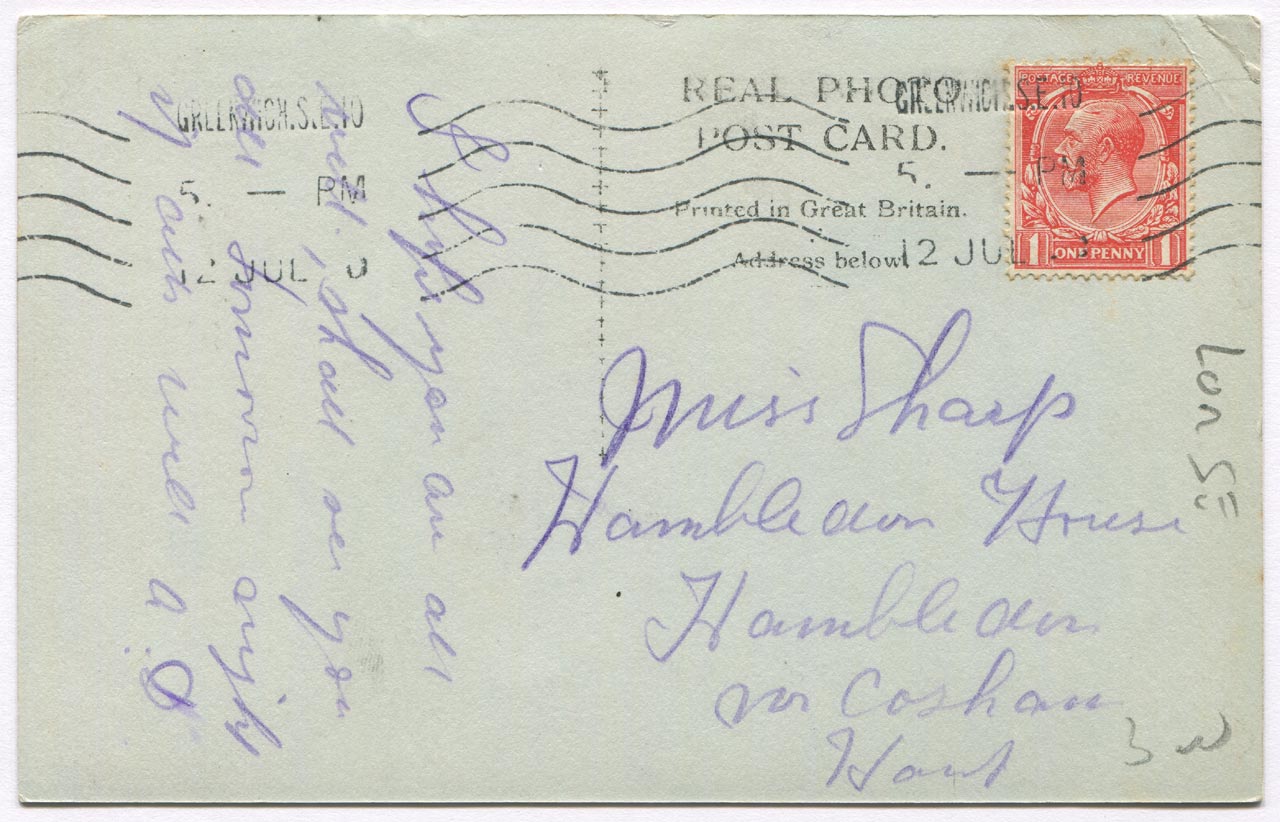 GREENWICH.S.E.10
5. — PM
12 JUL 0
REAL PHOTO
POST CARD.
Printed in Great Britain.
Address below.
GREENWICH.S.E.10
5. — PM
12 JUL
POSTAGE REVENUE
1 ONE PENNY 1
I hope you are all
well, shall see you
all tomorrow night
my am well A.S
Miss Sharp
Hambledon House
Hambledon
nr Cosham
Hant
Lon SE
3